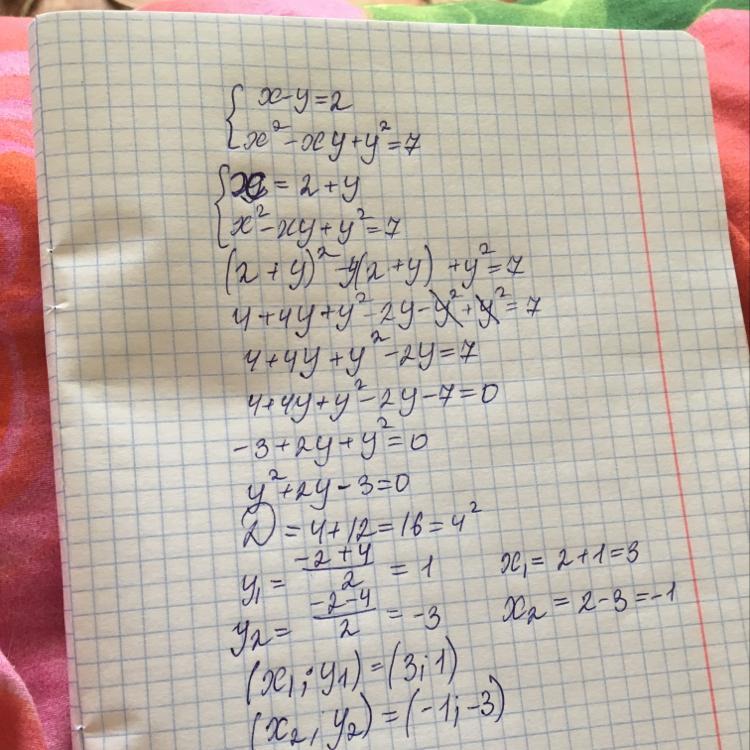 { x-y=2
x²-xy+y²=7
{ x = 2+y
x²-xy+y²=7
(2+y)²-y(2+y)+y²=7
4+4y+y²-2y-y²+y²=7
4+4y+y²-2y=7
4+4y+y²-2y-7=0
-3+2y+y²=0
y²+2y-3=0
D=4+12=16=4²
y₁=(-2+4)/2=1 x₁=2+1=3
y₂=(-2-4)/2=-3 x₂=2-3=-1
(x₁;y₁)=(3;1)
(x₂;y₂)=(-1;-3)